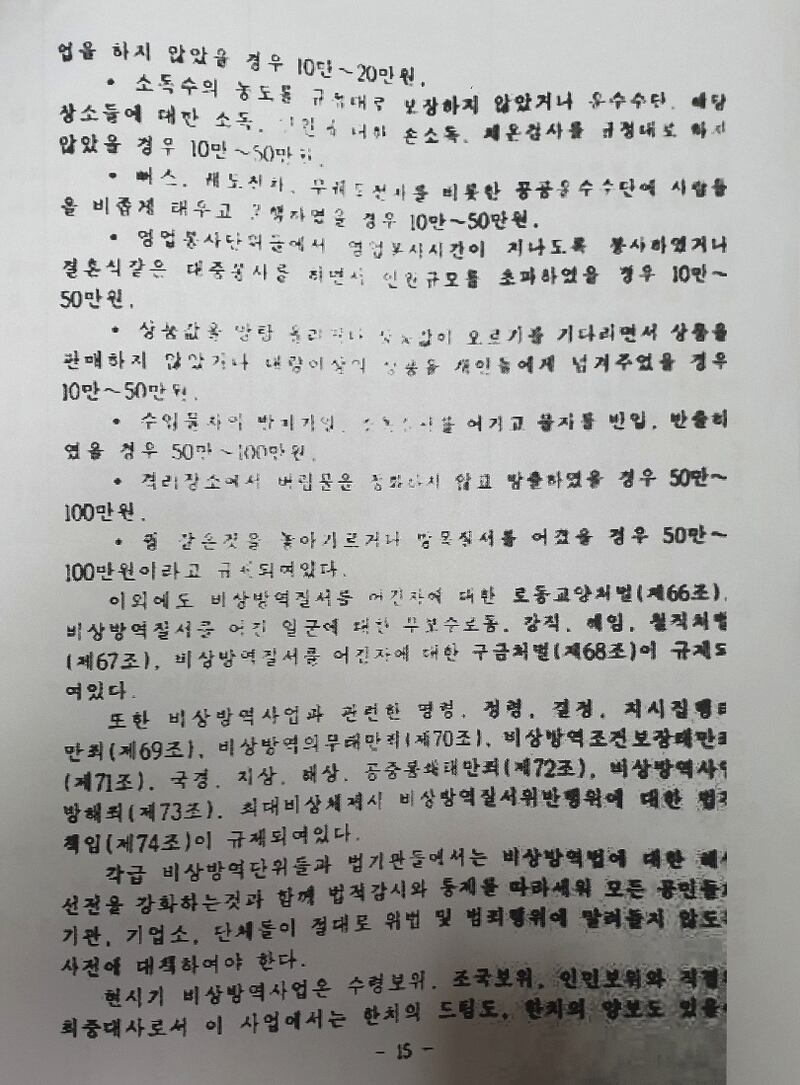 업을 하지 않았을 경우 10만~20만원.
• 소독수의 농도를 규정대로 보장하지 않았거나 운수수단, 해당
장소들에 대한 소독, 손소독, 체온검사를 규정대로 하지
않았을 경우 10만~50만원.
• 뻐스, 궤도전차, 무궤도전차를 비롯한 공공운수수단에 사람들
을 비좁게 태우고 경우 10만~50만원.
• 영업봉사단위들에서 영업봉사시간이 지나도록 봉사하였거나
결혼식같은 대중봉사를 하면서 인원규모를 초과하였을 경우 10만~
50만원.
• 상품값을 망탕 올리거나 상품값이 오르기를 기다리면서 상품을
판매하지 않았거나 대량이상의 상품을 개인들에게 넘겨주었을 경우
10만~50만원.
• 수입물자의 어기고 물자를 반입, 반출하
였을 경우 50만~100만원.
• 격리장소에서 버림물을 정화하지 않고 방출하였을 경우 50만~
100만원.
• 같은것을 놓아기르거나 방목질서를 어겼을 경우 50만~
100만원이라고 규제되여있다.
이외에도 비상방역질서를 어긴자에 대한 로동교양처벌(제66조),
비상방역질서를 어긴 일군에 대한 무보수로동, 강직, 해임, 철직처벌
(제67조), 비상방역질서를 어긴자에 대한 구금처벌(제68조)이 규제되
여있다.
또한 비상방역사업과 관련한 명령, 정령, 결정, 지시집행태
만죄(제69조), 비상방역의무태만죄(제70조), 비상방역조건보장태만죄
(제71조), 국경, 지상, 해상, 공중봉쇄태만죄(제72조), 비상방역사업
방해죄(제73조), 최대비상체제시 비상방역질서위반행위에 대한 법적
책임(제74조)이 규제되여있다.
각급 비상방역단위들과 법기관들에서는 비상방역법에 대한 해석
선전을 강화하는것과 함께 법적감시와 통제를 따라세워 모든 공민들과
기관, 기업소, 단체들이 절대로 위법 및 범죄행위에 말려들지 않도록
사전에 대책하여야 한다.
현시기 비상방역사업은 수령보위, 조국보위, 인민보위와 직결된
최중대사로서 이 사업에서는 한치의 드팀도, 한치의 양보도 있을수
- 15 -